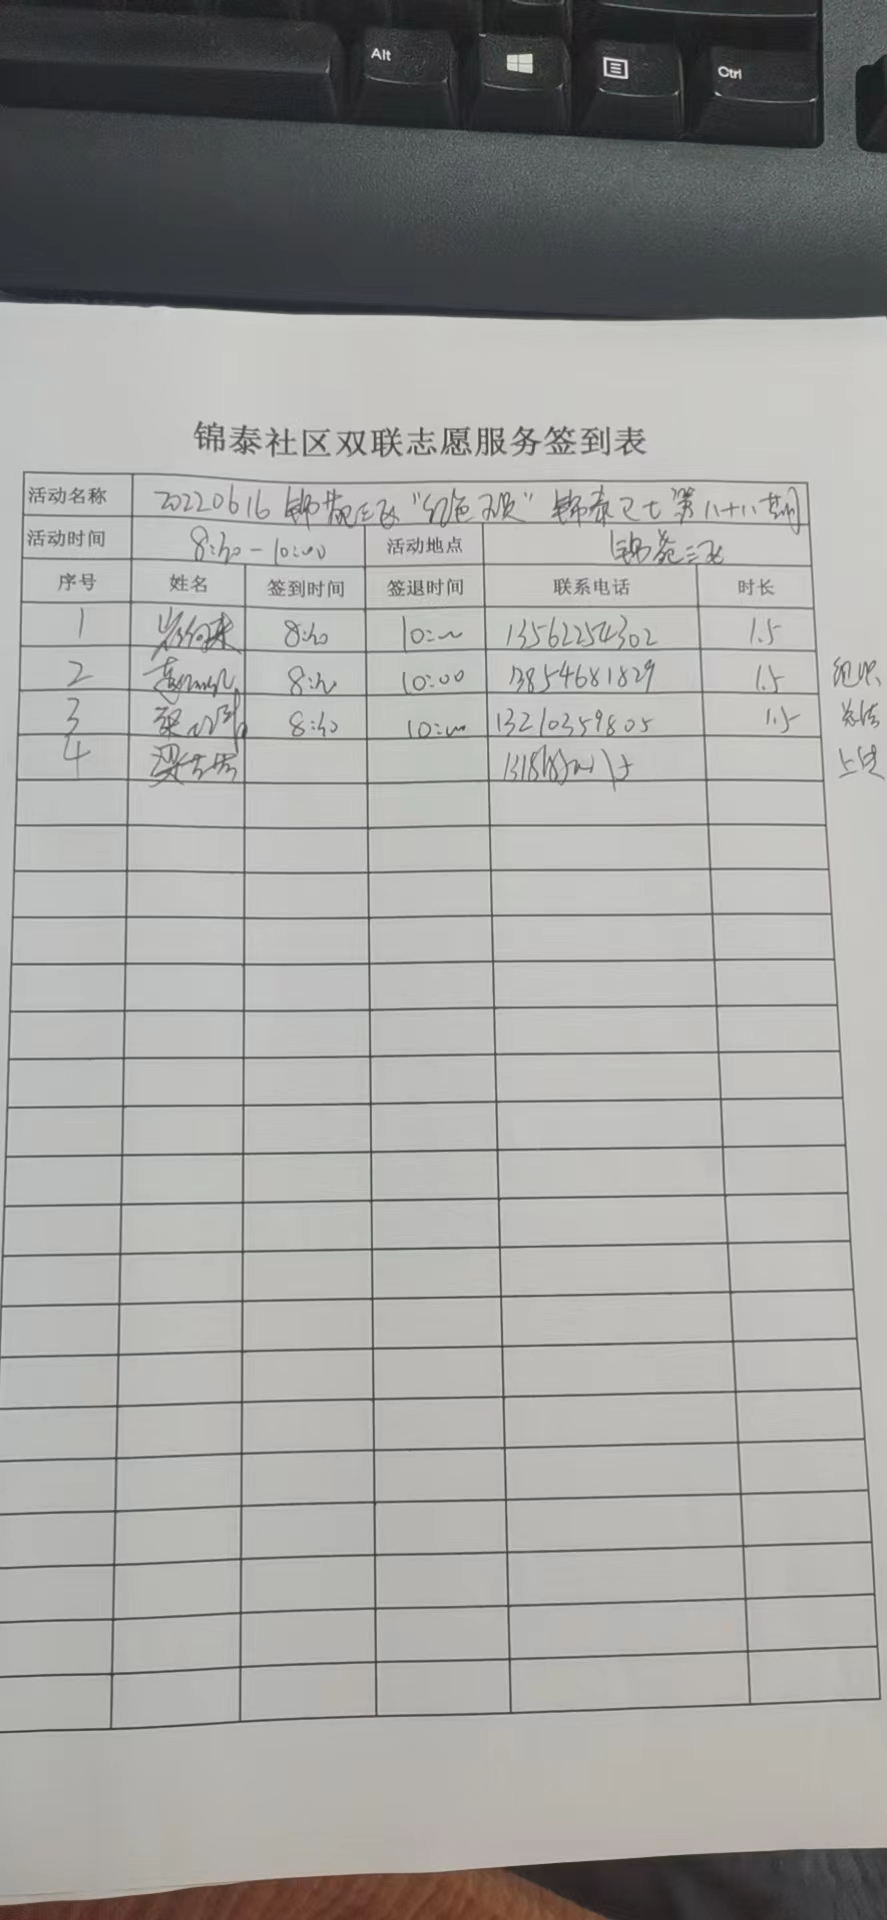 Alt
Ctrl
锦泰社区双联志愿服务签到表
活动名称 20220616 锦苑三 "红色 " 锦泰 第八十八期
活动时间 8:30-10:00 活动地点 锦苑三
序号 姓名 签到时间 签退时间 联系电话 时长
1 8:30 10:00 13562254302 1.5
2 8:30 10:00 13854681829 1.5 组织
3 8:30 10:00 13210359805 1.5 总结
4 梁 上传